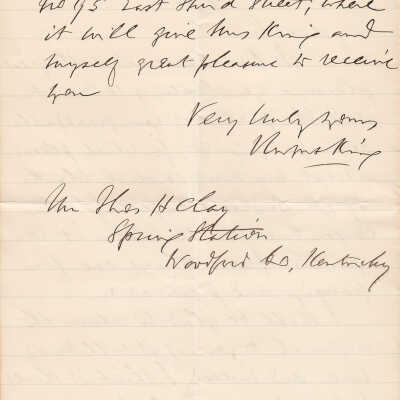 No 95 East Third Street, where
it will give Mrs King and
myself great pleasure to receive
you
Very truly yours
Rufus King
Mr Thos H Clay
Spring Station
Woodford Co, Kentucky